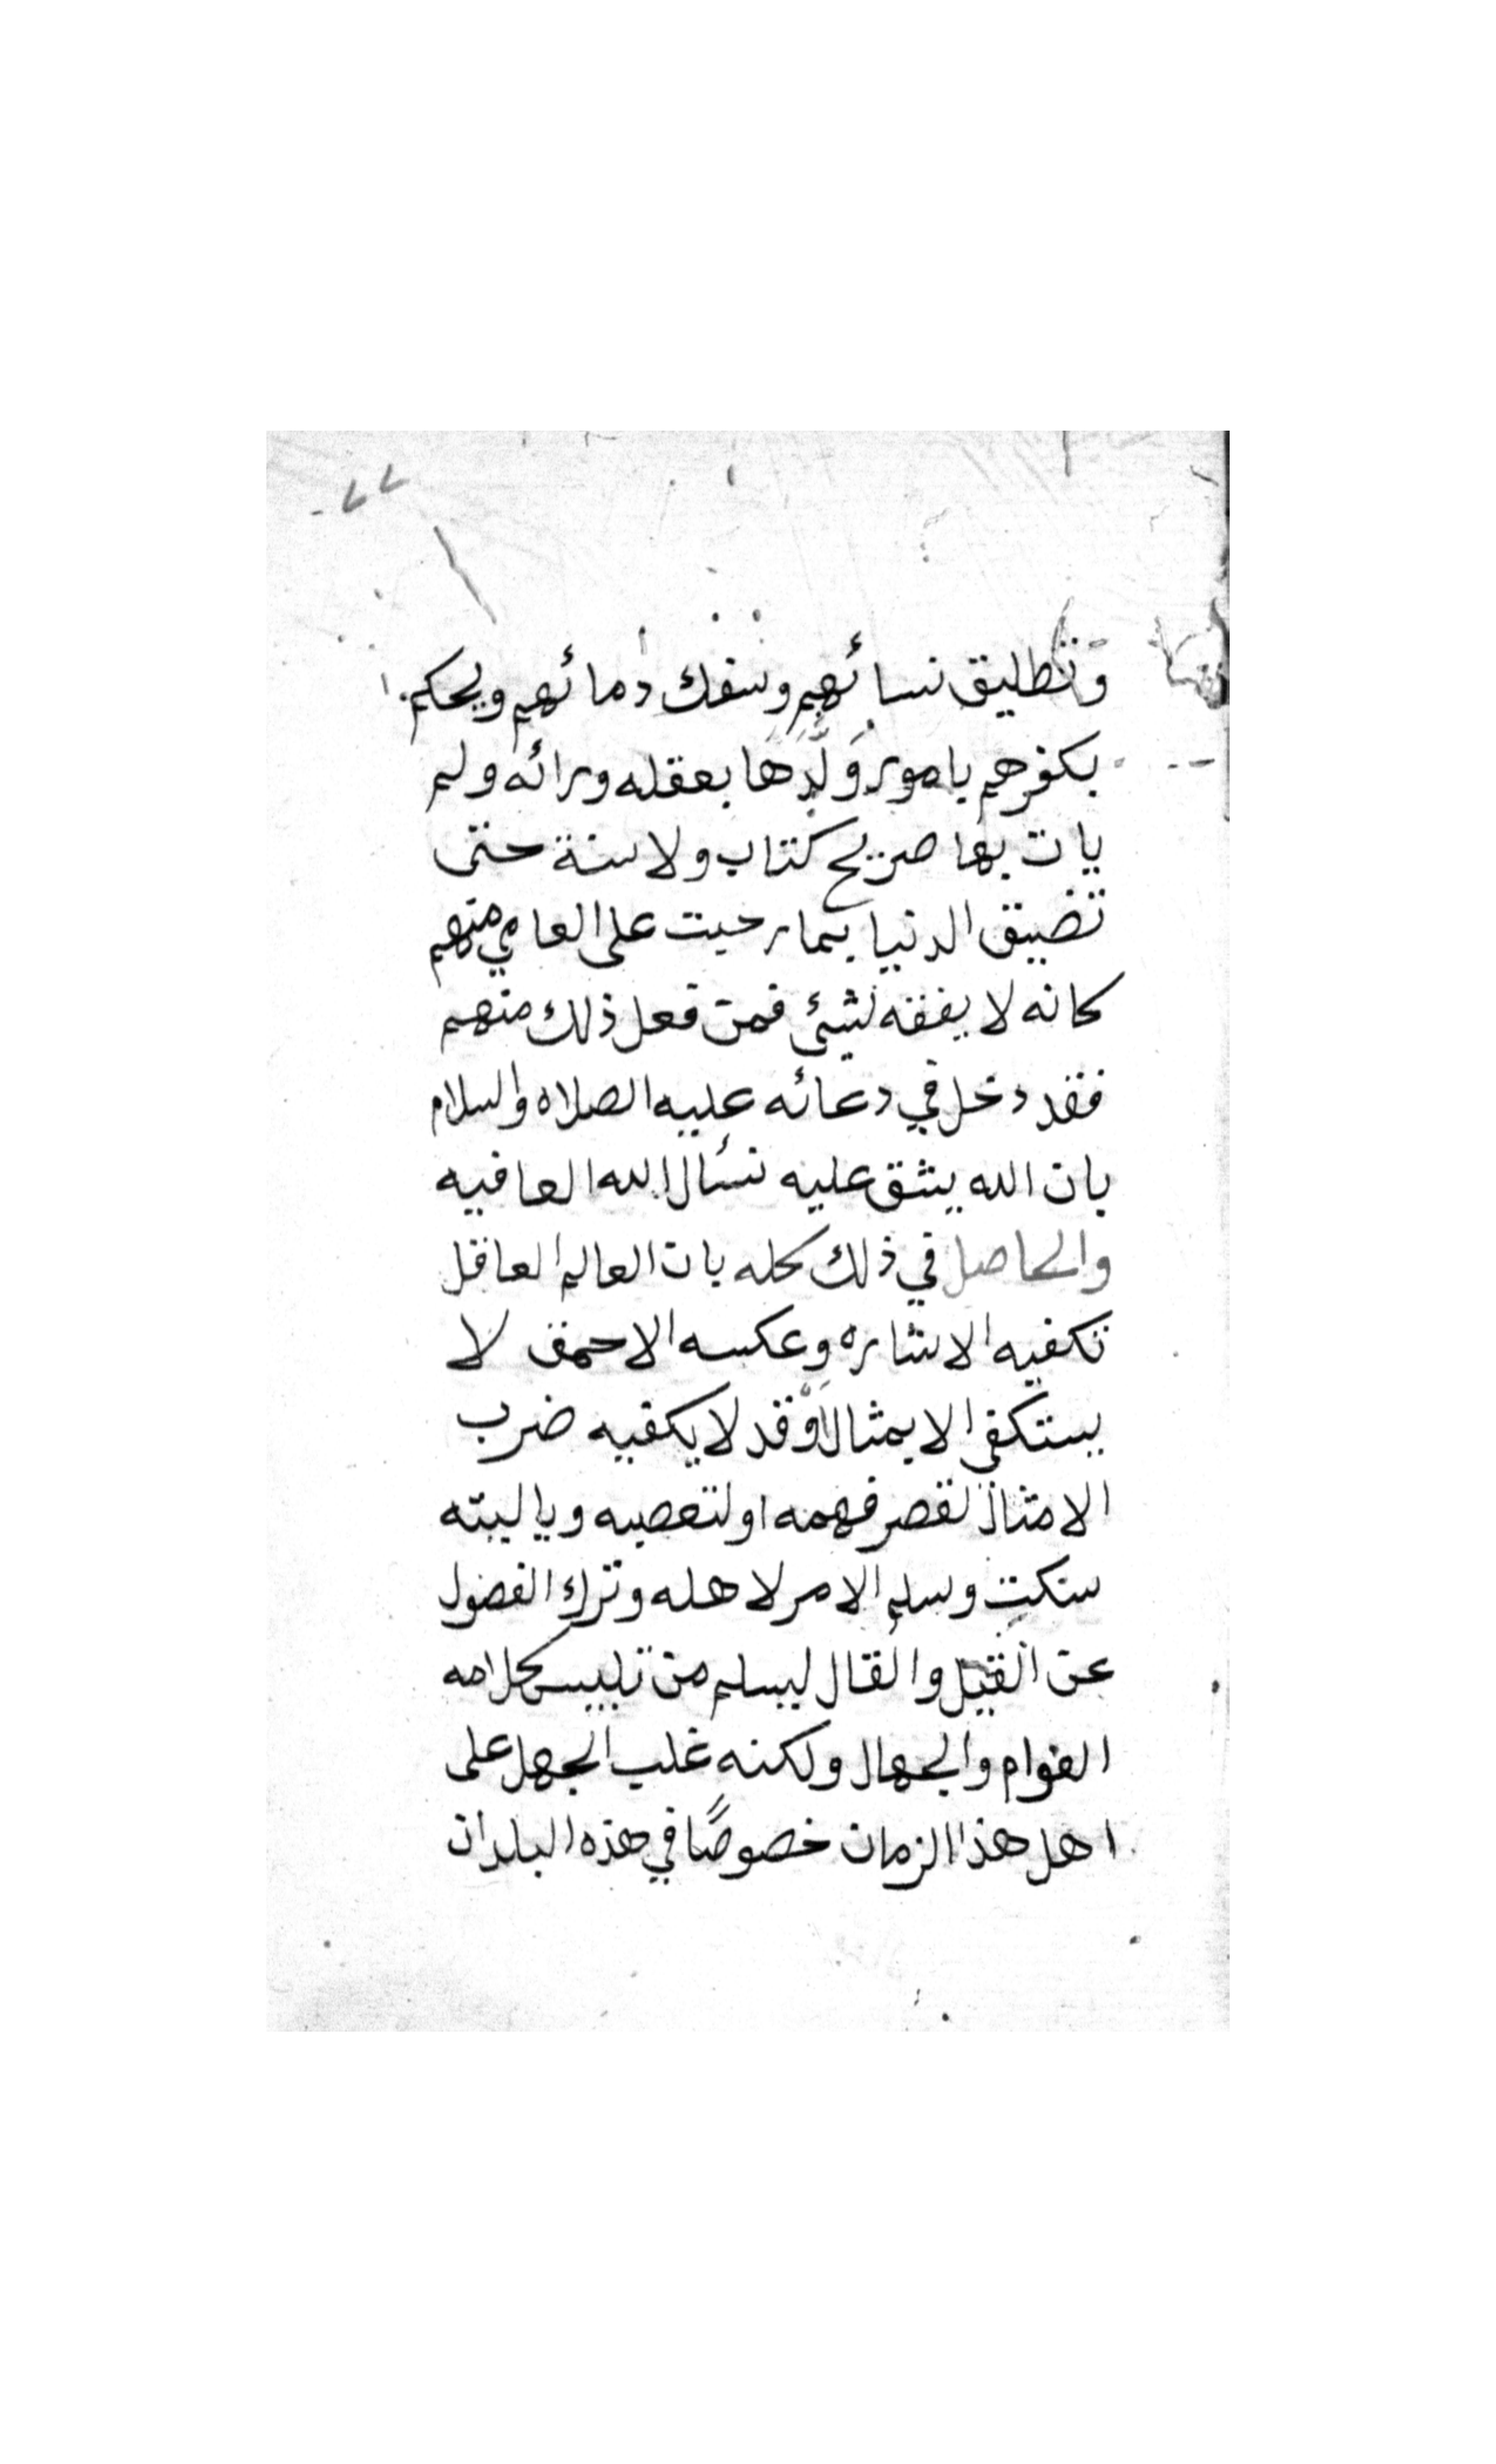 ٧٧
وتطليق نسائهم وسفك دمائهم ويحكم
بكفرهم بامور وَلَّدَهَا بعقله ورائه ولم
يات بها صريح كتاب ولا سنة حتى
تضيق الدنيا بما رحبت على العامي منهم
كانه لا يفقه لشئ فمن فعل ذلك منهم
فقد دخل في دعائه عليه الصلاه والسلام
بان الله يشق عليه نسئال الله العافيه
والحاصل في ذلك كله بان العالم العاقل
تكفيه الاشاره وعكسه الاحمق لا
يستكفى الا بمثال اوقد لا يكفيه ضرب
الامثال لقصر فهمه او لتعصبه وياليته
سكت وسلم الامر لاهله وترك الفضول
عن القيل والقال ليسلم من تلبيس كلامه
العوام والجهال ولكنه غلب الجهل على
اهل هذا الزمان خصوصًا في هذه البلدان